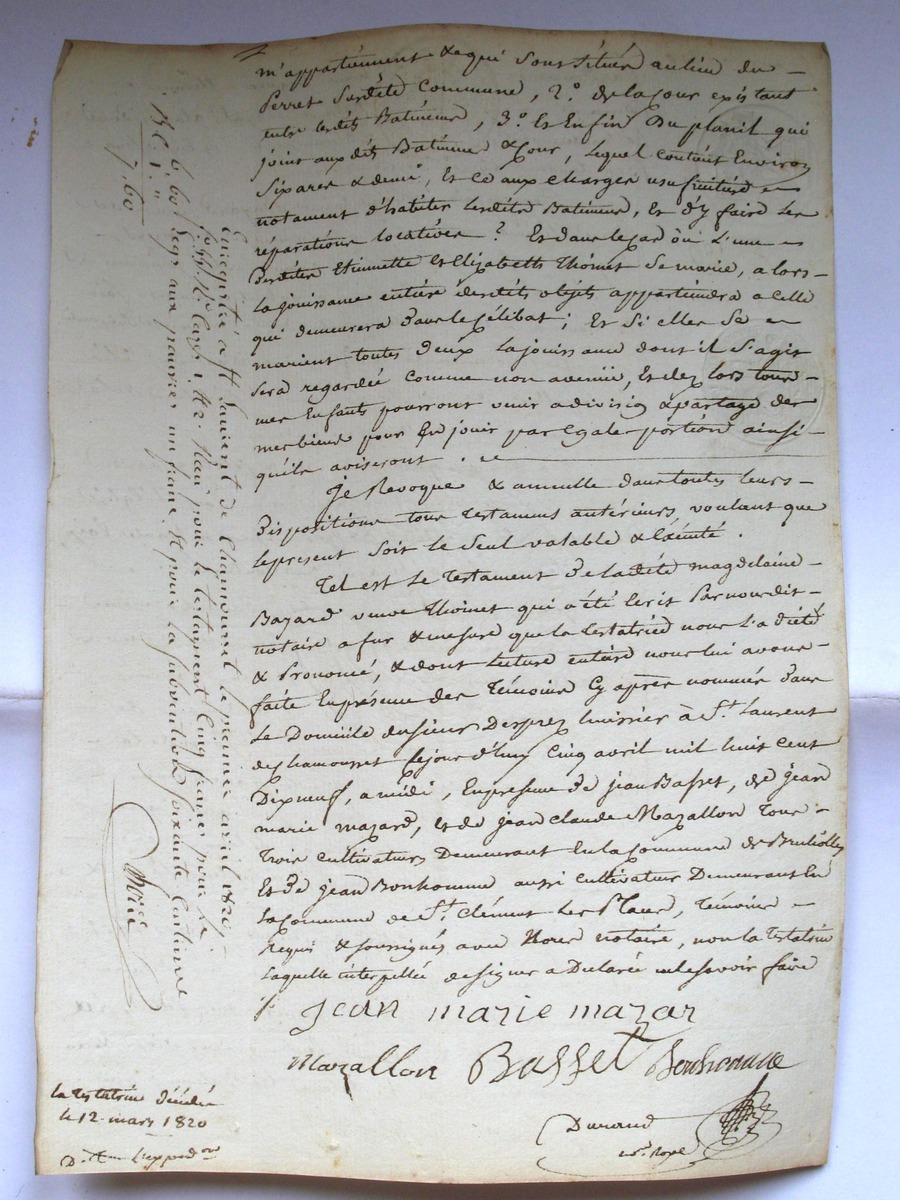 m'appartiennent & qui sont situés au lieu du
Perret Susdite Commune, 2.° de la Cour existant
entre lesdits Batimens, 3.° Et Enfin Du planil qui
joint aux dits Batimens & Cour, lequel contient Environ
Six ares & demi, Et Ce aux charges usufruitiere
notament d'habiter lesdits Batimens, Et d'y faire les
réparations locatives ? Et dans le cas où L'une
Desdites Etiennette Et Elizabeth Thoinet Se marie, alors
la jouissance entiere desdits objets appartiendra a Celle
qui demeurera Dans le Célibat ; Et Si elles Se
marient toutes Deux la jouissance dont il S'agit
Sera regardée Comme non avenüe, Et dez lors tous
mes Enfants pourront venir a division & partage de
mes biens pour En jouir par Egale portion ainsi
qu'ils aviseront .
Je Revoque & annulle dans toutes leurs
Dispositions tous Testamens antérieurs voulant que
le present Soit le Seul valable & Exécuté .
Tel est le Testament De ladite magdelaine
Bazard veuve Thoinet qui a été Ecrit Par nousdit
notaire a fur & mesure que la Testatrice nous l'a dicté
& Prononcé, & dont Lecture entière nous lui avons
faite En présence des Témoins Cy après nommés Dans
Le Domicile du Sieur Desprez huissier à S.t Laurent
de chamousset Cejourd'huy Cinq avril mil huit Cent
Dixneuf, a midi, En présence De jean Basset, de jean
marie mazard, et de jean Claude Mazallon Tous
Trois Cultivateurs Demeurant En la Commune de Brulliolles
Et De jean Bonhomme aussi Cultivateur Demeurant En
la Commune de S.t Clément les Places, Témoins
Requis & soussignés avec Nous notaire, non la Testatrice
laquelle interpellée de signer a Déclarée ne le Savoir faire
Jean marie mazar
Mazallon Basset Bonhomme
Durand
n.re Royal
Enregistré a St Laurent de Chamousset le
Reçu pour le testament Cinq francs pour le
legs aux pauvres un franc & pour la subvention soixante Centimes
6, 60
1. "
7, 60
la testatrice Décédée
le 12. mars 1820